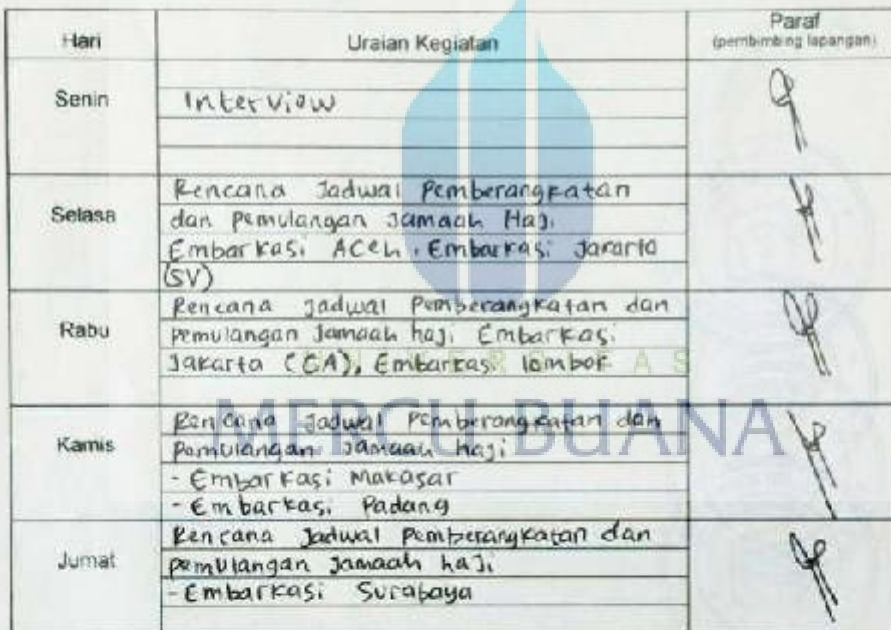 Hari Uraian Kegiatan Paraf
(pembimbing lapangan)
Senin Interview
Selasa
Rencana Jadwal Pemberangkatan
dan Pemulangan Jamaah Haji
Embarkasi Aceh, Embarkasi Jakarta
(SV)
Rabu
Rencana Jadwal Pemberangkatan dan
Pemulangan Jamaah haji Embarkasi
Jakarta (GA), Embarkasi lombok
Kamis
Rencana Jadwal Pemberangkatan dan
Pemulangan Jamaah haji
- Embarkasi Makasar
- Embarkasi Padang
Jumat
Rencana Jadwal Pemberangkatan dan
pemulangan Jamaah haji
- Embarkasi Surabaya
MERCU BUANA